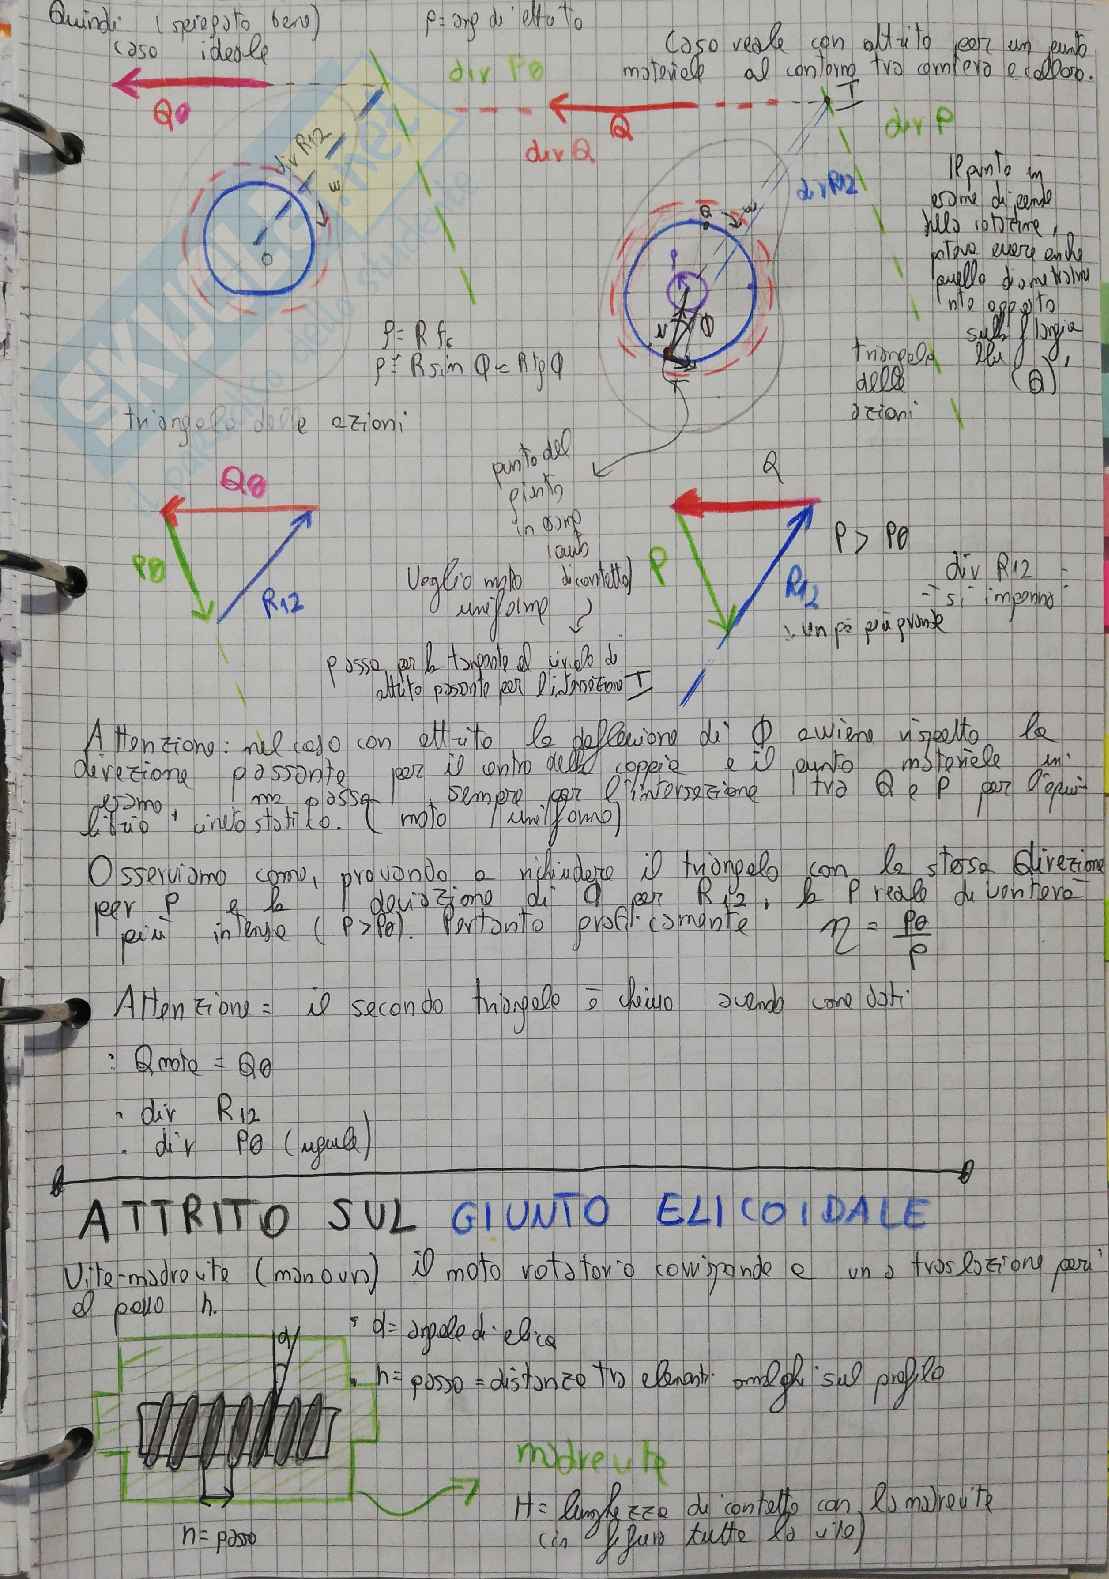 Quindi (spiegato bene)
caso ideale
φ = ang di attrito
Caso reale con attrito per un punto
materiale al contorno tra cerniera e
div Pθ
div P
Qθ
Q
div Q
I
div R12
div R12
ω
O
Q
ω
ρ
φ
Il punto in
esame dipende
dalla rotazione,
poteva essere anche
quello diametralme
nte opposto
sulla flangia
(Q)
ρ = R fc
ρ = R sin φ ≈ R tg φ
triangolo
delle
azioni
triangolo delle azioni
Qθ
Pθ
R12
punto del
in esame
di contatto)
Voglio moto
uniforme
passa per la tangente al circolo di
attrito passante per l'intersezione I
Q
P
R12
P > Pθ
div R12 =
si impenna
: un pò più grande
Attenzione: nel caso con attrito la deflessione di φ avviene rispetto la
direzione passante per il centro della coppia e il punto materiale in
esame, ma passa sempre per l'intersezione tra Q e P per l'equi-
librio cinetostatico. (moto uniforme)
Osserviamo come, provando a richiudere il triangolo con la stessa direzione
per P e la deviazione di φ per R12, la P reale diventerà
più intensa (P>Pθ). Pertanto graficamente η = Pθ/P
Attenzione = il secondo triangolo è chiuso avendo come dati:
: Q nota = Qθ
. div R12
. div Pθ (uguale)
ATTRITO SUL GIUNTO ELICOIDALE
Vite-madrevite (manovra) il moto rotatorio corrisponde a una traslazione pari
al passo h.
α
• α = angolo di elica
. h = passo = distanza tra elementi omologhi sul profilo
madrevite
H = lunghezza di contatto con la madrevite
(in figura tutta la vite)
h = passo
SKUOLA.net